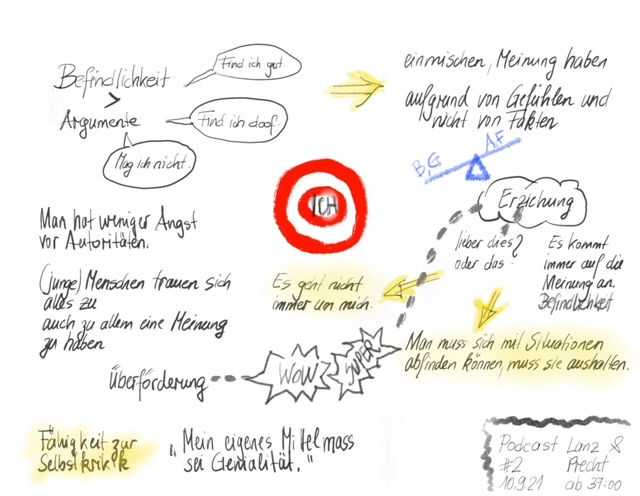 Befindlichkeit
>
Argumente
Find ich gut.
Find ich doof.
Mag ich nicht.
einmischen, Meinung haben
aufgrund von Gefühlen und
nicht von Fakten
B,G
AF
ICH
Erziehung
Man hat weniger Angst
vor Autoritäten.
(junge) Menschen trauen sich
alles zu
auch zu allem eine Meinung
zu haben
Es geht nicht
immer um mich.
lieber dies?
oder das?
Es kommt
immer auf die
Meinung an.
Befindlichkeit
Man muss sich mit Situationen
abfinden können, muss sie aushalten.
Überforderung
WOW
SUPER
Fähigkeit zur
Selbstkritik
"Mein eigenes Mittelmass
sei Genialität."
Podcast Lanz &
#2 Precht
10.9.21 ab 37:00